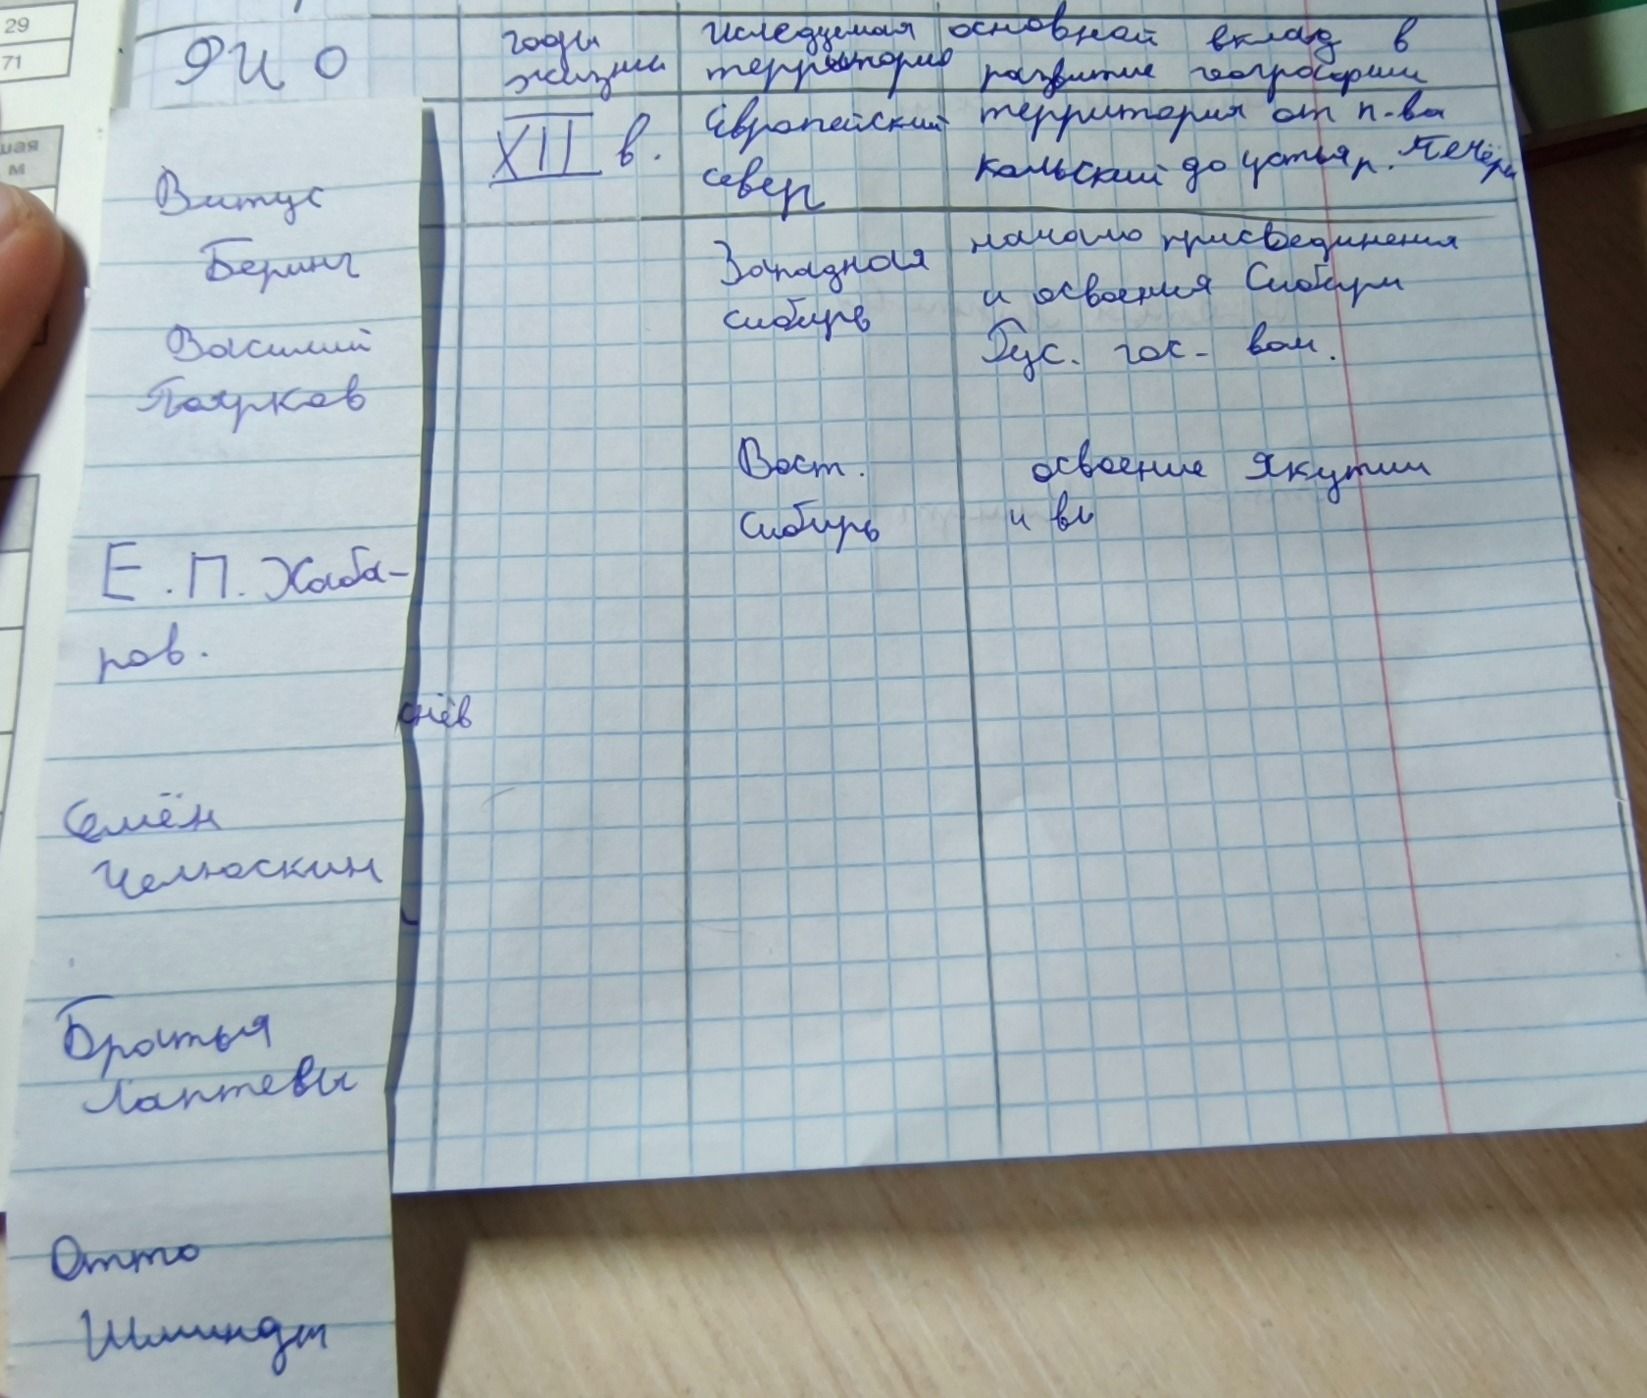 29
71
шая
м
ФИО
годы
жизни
иследуемая
территорию
основной вклад в
развитие географии
XII в.
Европейский
север
территория от п-ва
Кольский до устья р. Печёры
Западная
сибирь
начало присоединения
и освоения Сибири
Рус. гос-вом.
Вост.
Сибирь
освоение Якутии
и вы
Витус
Беринг
Василий
Поярков
Е.П. Хаба-
ров.
нёв
Семён
Челюскин
Братья
Лаптевы
Отто
Шминдт